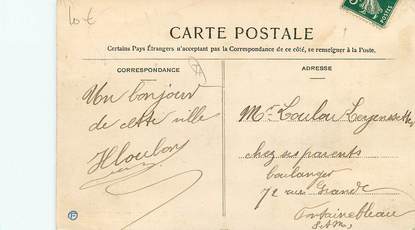 10 €
CARTE POSTALE
Certains Pays Étrangers n'acceptant pas la Correspondance de ce côté, se renseigner à la Poste.
CORRESPONDANCE
ADRESSE
Un bonjour
de cette ville
Mr Loulou
chez ses parents
boulanger
72 rue Grande
Fontainebleau
S.&M.